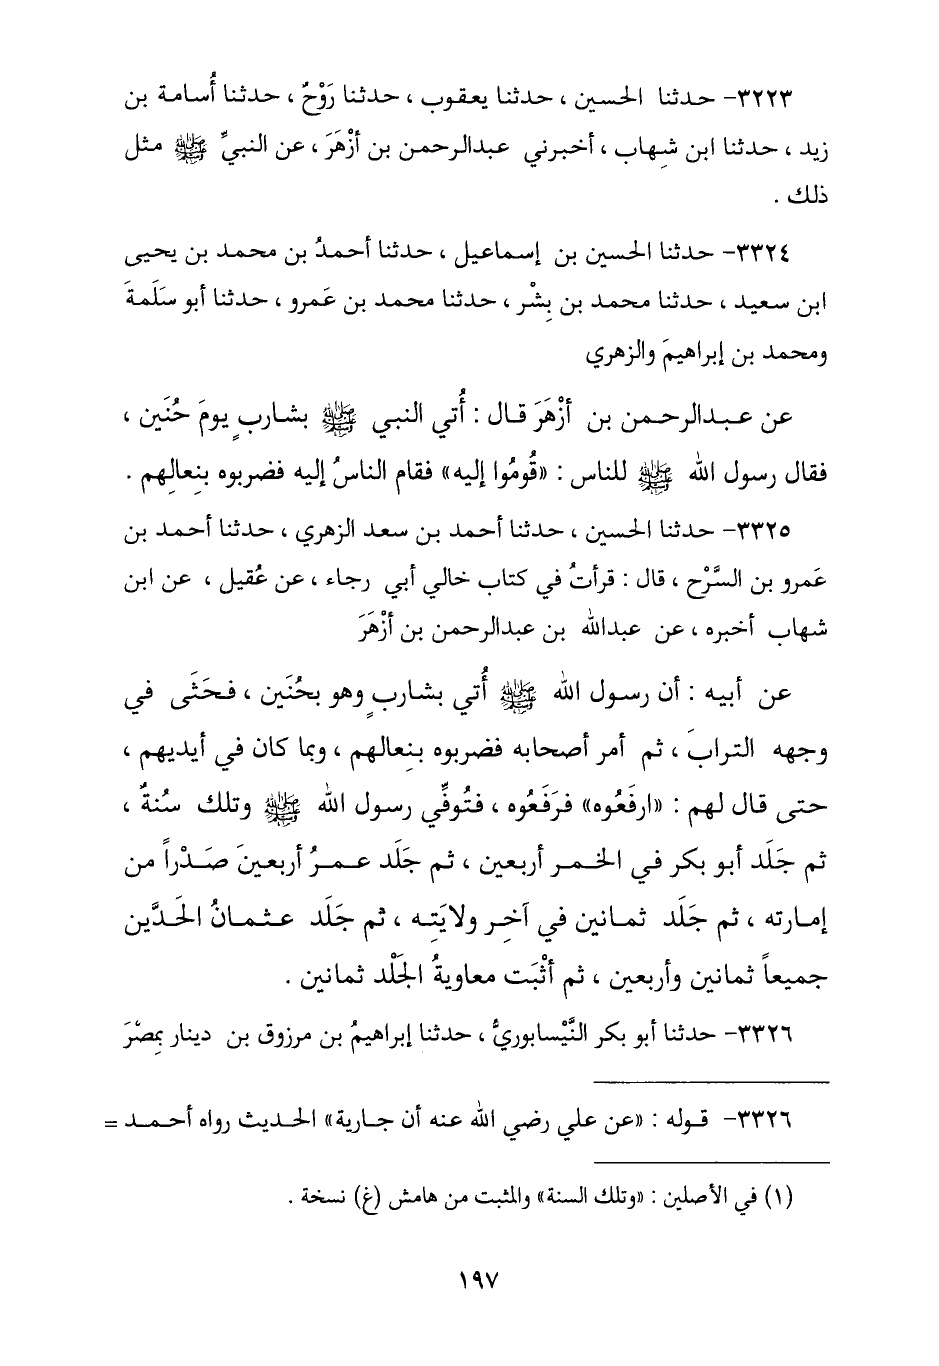 ٣٢٢٣- حدثنا الحسين ، حدثنا يعقوب ، حدثنا رَوْحٌ ، حدثنا أُسامة بن
زيد ، حدثنا ابن شِهاب ، أخبرني عبدالرحمن بن أزْهَرَ ، عن النبيِّ ﷺ مثل
ذلك .
٣٣٢٤- حدثنا الحسين بن إسماعيل ، حدثنا أحمدُ بن محمد بن يحيى
ابن سعيد ، حدثنا محمد بن بِشْر ، حدثنا محمد بن عَمرو ، حدثنا أبو سَلَمةَ
ومحمد بن إبراهيمَ والزهري
عن عبدالرحمن بن أزْهَرَ قال : أُتي النبي ﷺ بشاربٍ يومَ حُنَين ،
فقال رسول الله ﷺ للناس : «قُومُوا إليه» فقام الناسُ إليه فضربوه بنِعالِهم .
٣٣٢٥- حدثنا الحسين ، حدثنا أحمد بن سعد الزهري ، حدثنا أحمد بن
عَمرو بن السَّرْح ، قال : قرأتُ في كتاب خالي أبي رجاء ، عن عُقيل ، عن ابن
شهاب أخبره ، عن عبدالله بن عبدالرحمن بن أزْهَرَ
عن أبيه : أن رسول الله ﷺ أُتي بشاربٍ وهو بحُنَين ، فحَثَى في
وجهه الترابَ ، ثم أمر أصحابه فضربوه بنِعالهم ، وبما كان في أيديهم ،
حتى قال لهم : «ارفَعُوه» فرَفَعُوه ، فتُوفِّي رسول الله ﷺ وتلك سُنةٌ ،
ثم جَلَد أبو بكر في الخمر أربعين ، ثم جَلَد عمرُ أربعينَ صَدْراً من
إمارته ، ثم جَلَد ثمانين في آخِر ولايَتِه ، ثم جَلَد عثمانُ الحَدَّين
جميعاً ثمانين وأربعين ، ثم أثْبَت معاويةُ الجَلْد ثمانين .
٣٣٢٦- حدثنا أبو بكر النَّيْسابوريُّ ، حدثنا إبراهيمُ بن مرزوق بن دينار بمِصْرَ
٣٣٢٦- قوله : «عن علي رضي الله عنه أن جارية» الحديث رواه أحمد =
(١) في الأصلين : «وتلك السنة» والمثبت من هامش (غ) نسخة .
١٩٧